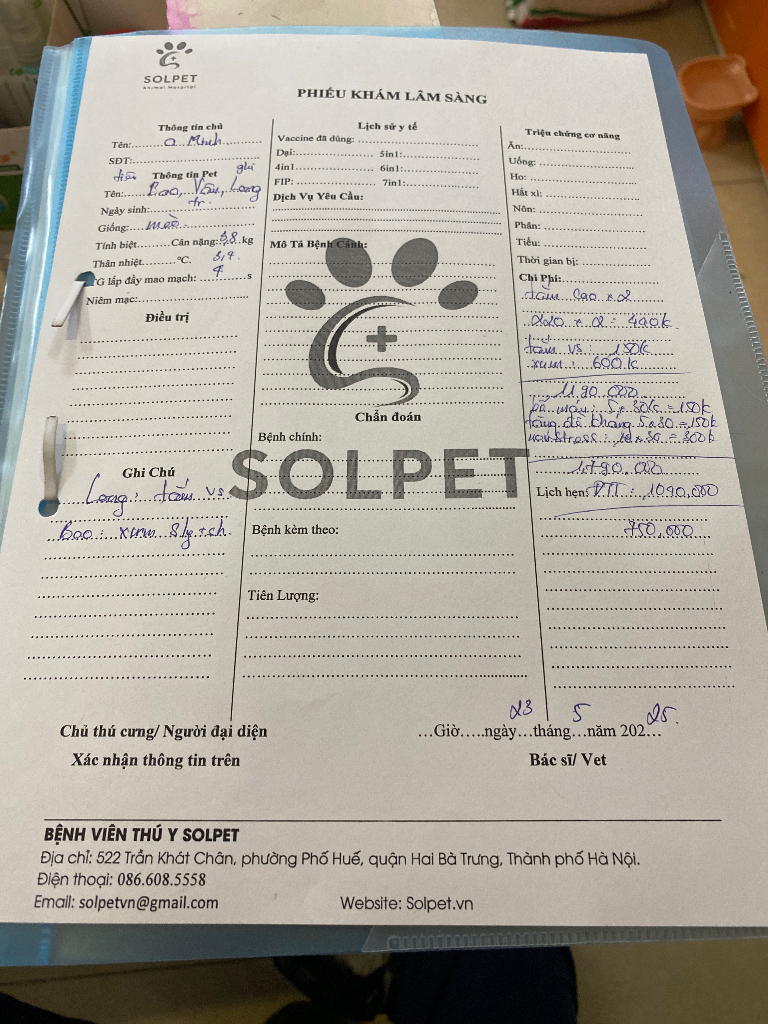 SOLPET
Animal Hospital
PHIẾU KHÁM LÂM SÀNG
Thông tin chủ
Tên: a Minh
SĐT:
Thông tin Pet
Tên: Bao, Vân, Long
Ngày sinh:
Giống: mèo
Tính biệt Cân nặng: 3,8 kg
Thân nhiệt °C. 3,4
TG lấp đầy mao mạch: 4 s
Niêm mạc:
Điều trị
Ghi Chú
Long: tắm vs
Bao: xưm
Lịch sử y tế
Vaccine đã dùng:
Dại: 5in1:
4in1 6in1:
FIP: 7in1:
Dịch Vụ Yêu Cầu:
Mô Tả Bệnh Cảnh:
Chẩn đoán
Bệnh chính:
SOLPET
Bệnh kèm theo:
Tiên Lượng:
Triệu chứng cơ năng
Ăn:
Uống:
Ho:
Hắt xì:
Nôn:
Phân:
Tiểu:
Thời gian bị:
Chi Phí:
tắm cạo x 2
220 x 2 = 440k
tắm vs: 150k
xưm: 600k
1190.000
máu: 5 x 30k = 150k
tăng đề kháng 5 x 30 = 150k
Stress: 10 x 30 = 300k
1,790,000
Lịch hẹn: 1090,000
750,000
Chủ thú cưng/ Người đại diện
Xác nhận thông tin trên
…Giờ…..ngày 23 tháng 5 năm 202 25.
Bác sĩ/ Vet
BỆNH VIÊN THÚ Y SOLPET
Địa chỉ: 522 Trần Khát Chân, phường Phố Huế, quận Hai Bà Trưng, Thành phố Hà Nội.
Điện thoại: 086.608.5558
Email: solpetvn@gmail.com Website: Solpet.vn